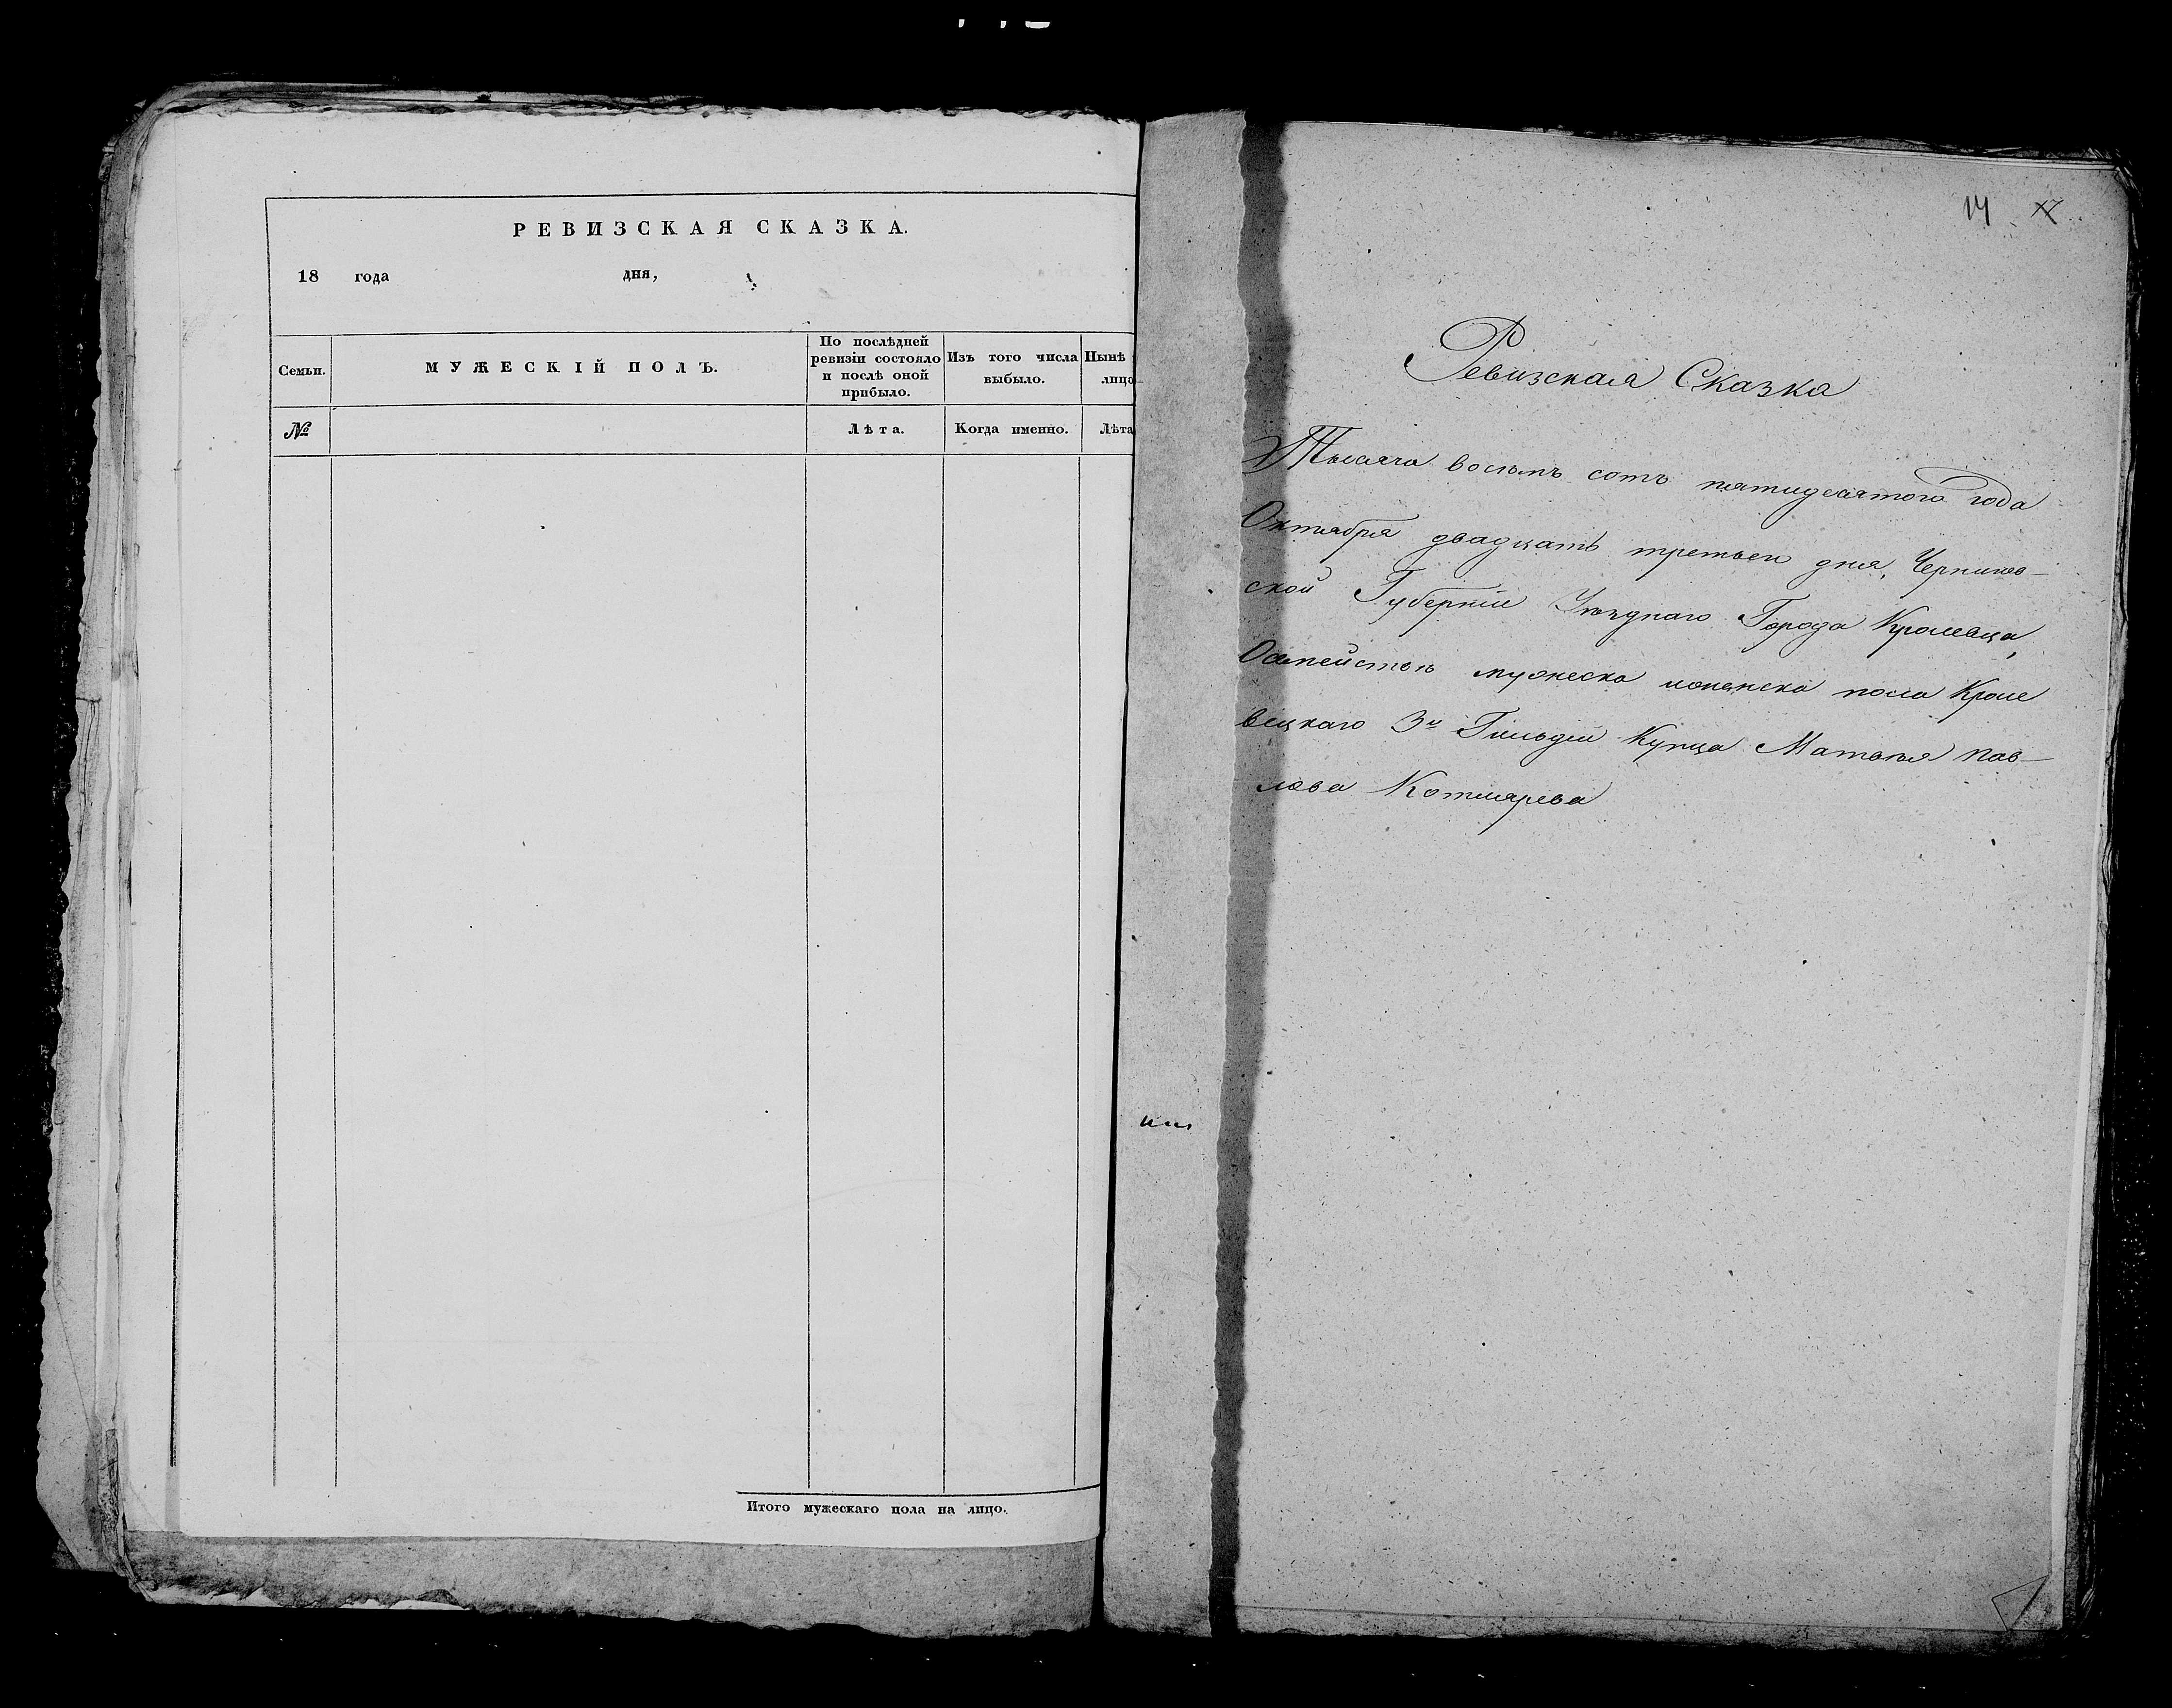 РЕВИЗСКАЯ СКАЗКА.
18 года дня,
Семьи.
МУЖЕСКІЙ ПОЛЪ.
По послѣдней
ревизіи состояло
и послѣ оной
прибыло.
Изъ того числа
выбыло.
Нынѣ
лицо
№
Лѣта.
Когда именно.
Лѣта
Итого мужескаго пола на лицо.
14 17
Ревизская Сказка
Тысяча восемъ сотъ пятидесятого года
Октября двадцать третьего дня, Чернигов-
ской Губерніи Уѣзднаго Города Кролевца,
О семействѣ мужеска и женска пола Кроле
вецкаго 3й Гильдіи Купца Матвѣя Пав-
лова Котлярева